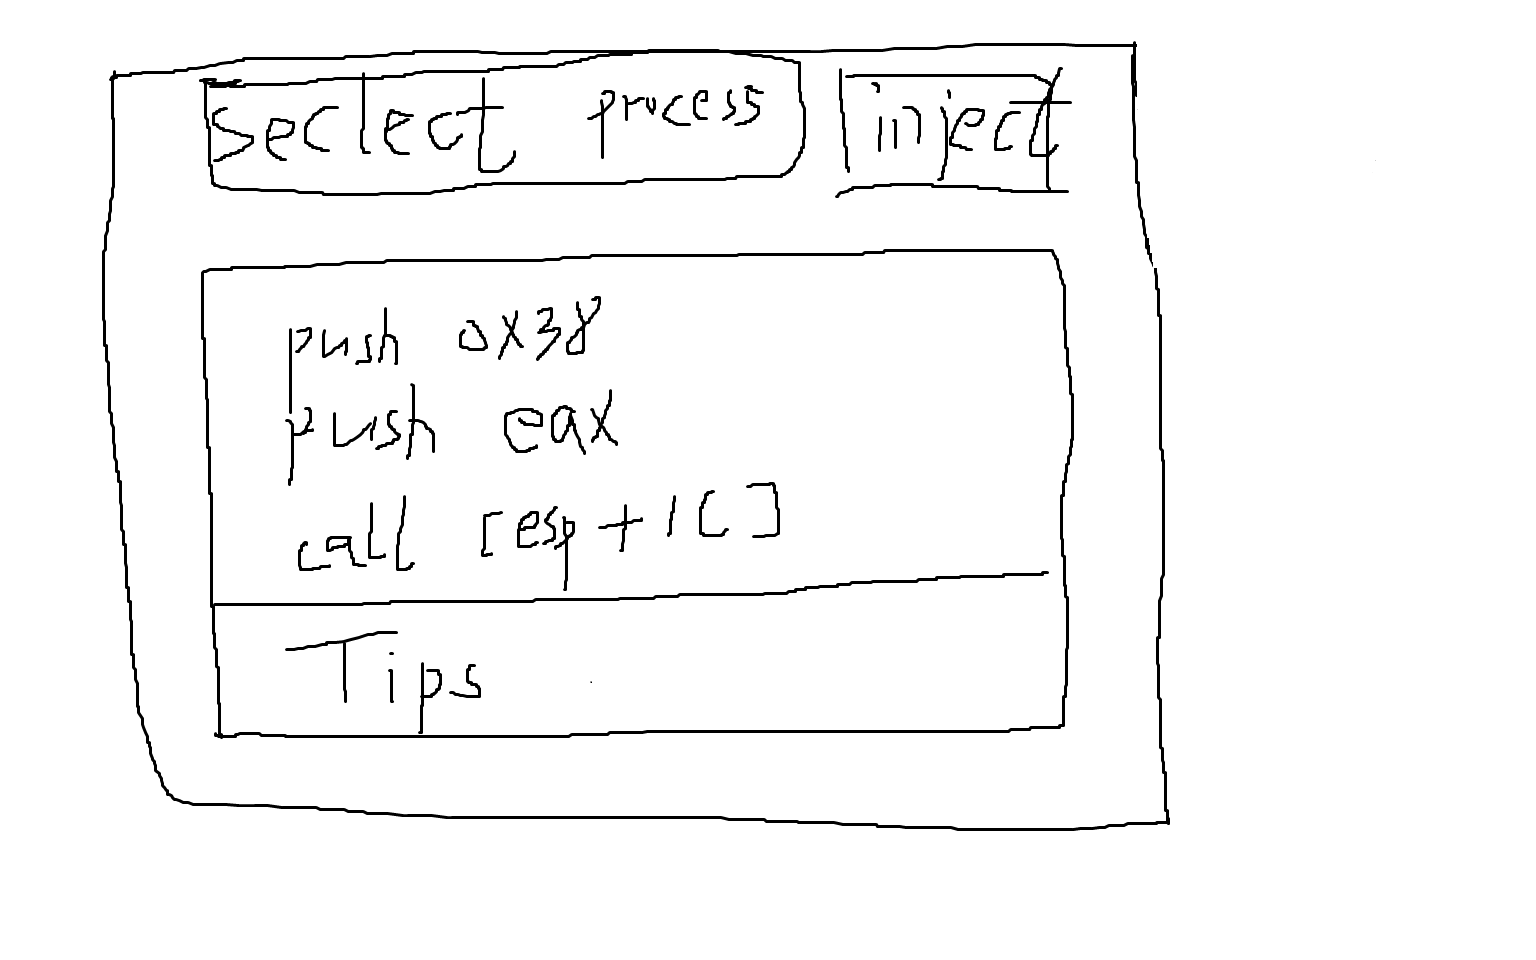 seclect process
inject
push 0x38
push eax
call [esp+1C]
Tips